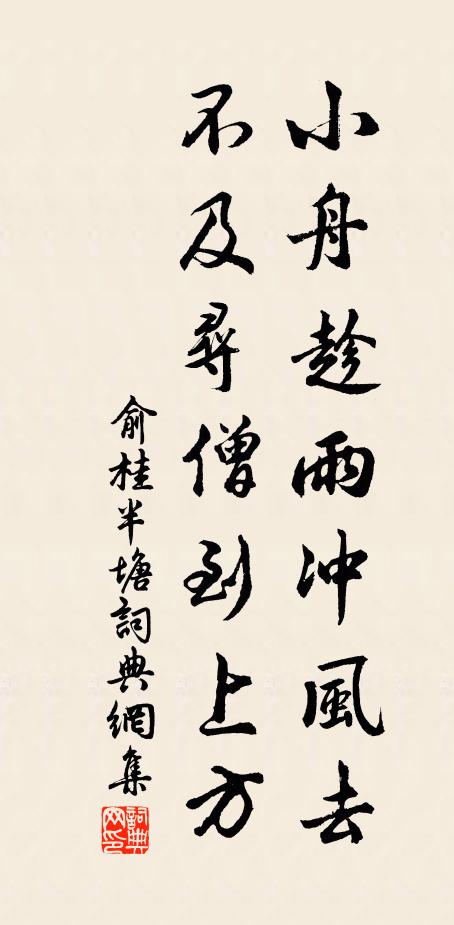 小舟趁雨冲風去
不及尋僧到上方
俞桂半塘詞典網集
詞典网印